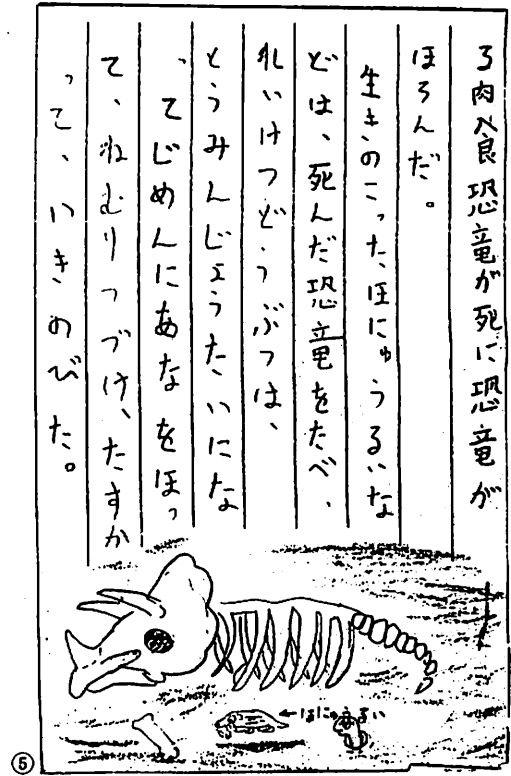 る肉食恐竜が死に恐竜が
ほろんだ。
生きのこった、ほにゅうるいな
どは、死んだ恐竜をたべ、
れいけつどうぶつは、
とうみんじょうたいにな
ってじめんにあなをほっ
て、ねむりつづけ、たすか
って、いきのびた。
←ほにゅうるい
⑤